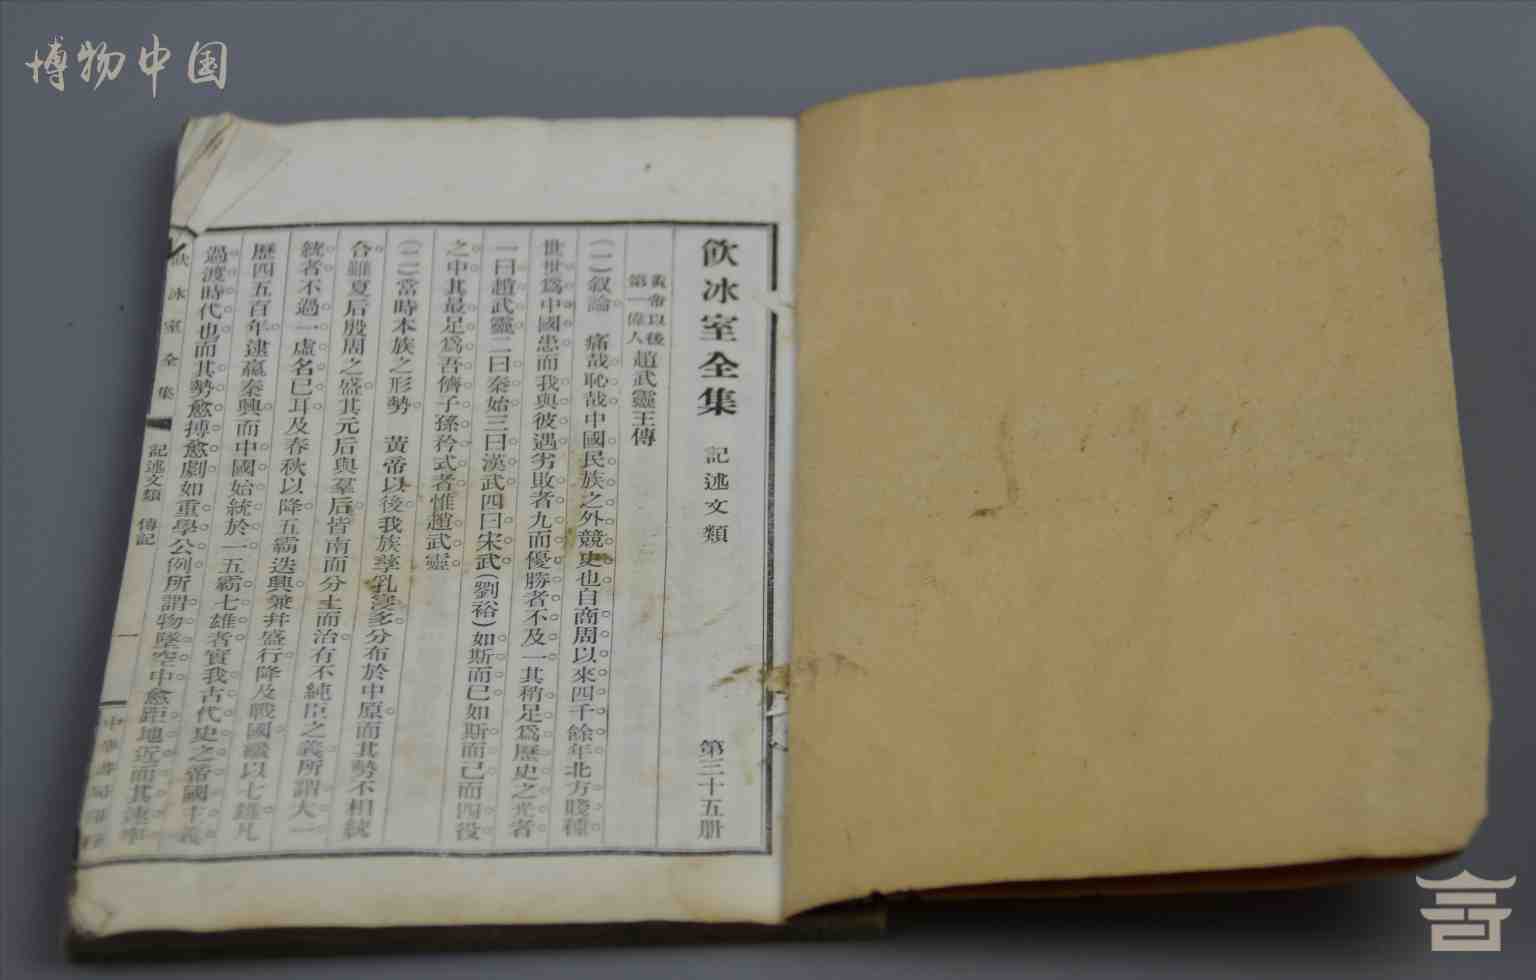 博物中国
飲冰室全集 記述文類 第三十五册
黃帝以後第一偉人趙武靈王傳
(一)叙論 痛哉恥哉中國民族之外競史也自商周以來四千餘年北方賤種
世世爲中國患而我與彼遇劣敗者九而優勝者不及一其稍足爲歷史之光者
一曰趙武靈二曰秦始三曰漢武四曰宋武(劉裕)如斯而已如斯而已而四役
之中其最足爲吾儕子孫矜式者惟趙武靈
(二)當時本族之形勢 黃帝以後我族孳乳寖多分布於中原而其勢不相統
合雖夏后殷周之盛其元后與羣后皆南面分土而治有不純臣之義所謂大一
統者不過一虛名已耳及春秋以降五霸迭興兼并盛行降及戰國繼以七雄凡
歷四五百年逮嬴秦興而中國始統於一五霸七雄者實我古代史之帝國主義
過渡時代也而其勢愈搏愈劇如重學公例所謂物墜空中愈距地近而其速率
飲冰室全集 記述文類 傳記 一 中華書局印行